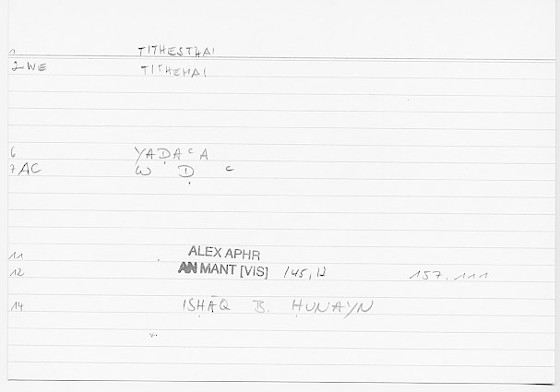 1 TITHESTHAI
2 WE TITHEMAI
6 YAḌAᶜA
7 AC W Ḍ ᶜ
11 ALEX APHR
12 AN MANT [VIS] 145,12 157.111
14 ISḤĀQ B. ḤUNAYN